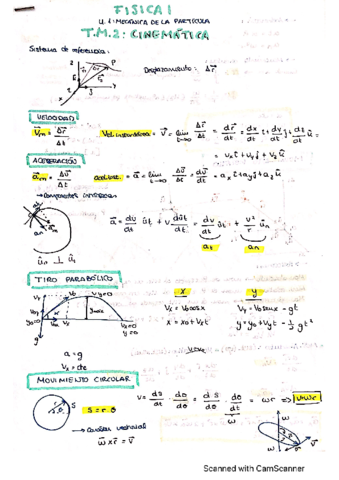 FISICA I
U.1 MECÁNICA DE LA PARTÍCULA
T.M.2: CINEMÁTICA
Sistema de referencia:
Desplazamiento: Δr⃗
VELOCIDAD
v⃗m = Δr⃗/Δt   Vel. instantánea: v⃗ = lim t→0 Δr⃗/Δt = dr⃗/dt = dx/dt i + dy/dt j + dz/dt
= vx i + vy j + vz
ACELERACIÓN
a⃗m = Δv⃗/Δt   acel. inst.: a⃗ = lim t→0 Δv⃗/Δt = dv⃗/dt = ax i + ay j + az
→ Componentes intrínsecas
a⃗ = dv/dt ût + v dût/dt = dv/dt ût + v²/r ûn
at   an
ûn ⊥ ût
TIRO PARABÓLICO
x   y
Vx = V0 cosα   Vy = V0 senα - gt
x = x0 + Vx t   y = y0 + Vy t - 1/2 gt²
a = g
Vx = cte
MOVIMIENTO CIRCULAR
S = r·θ
v = ds/dt · dθ/dθ = ds/dθ · dθ/dt = ωr ⇒ v = ωr
→ Carácter vectorial
ω⃗ x r⃗ = v⃗
Scanned with CamScanner